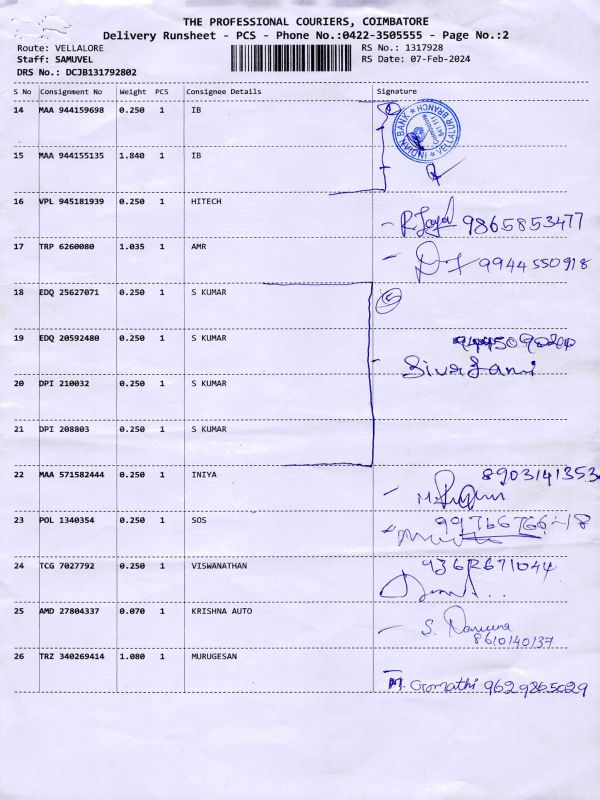 THE PROFESSIONAL COURIERS, COIMBATORE
Delivery Runsheet - PCS - Phone No.:0422-3505555 - Page No.:2
Route: VELLALORE RS No.: 1317928
Staff: SAMUVEL RS Date: 07-Feb-2024
DRS No.: DCJB131792802
S No Consignment No Weight PCS Consignee Details Signature
14 MAA 944159698 0.250 1 IB
INDIAN BANK ★ VELLALUR BRANCH ★
Coimbatore
641 111
15 MAA 944155135 1.840 1 IB
16 VPL 945181939 0.250 1 HITECH
9865853477
17 TRP 6260080 1.035 1 AMR
9944550918
18 EDQ 25627071 0.250 1 S KUMAR
5
19 EDQ 20592480 0.250 1 S KUMAR
20 DPI 210032 0.250 1 S KUMAR
21 DPI 208803 0.250 1 S KUMAR
22 MAA 571582444 0.250 1 INIYA
8903141353
23 POL 1340354 0.250 1 SOS
24 TCG 7027792 0.250 1 VISWANATHAN
9362671044
25 AMD 27804337 0.070 1 KRISHNA AUTO
8610140137
26 TRZ 340269414 1.080 1 MURUGESAN
M. Gomathi 9629865029